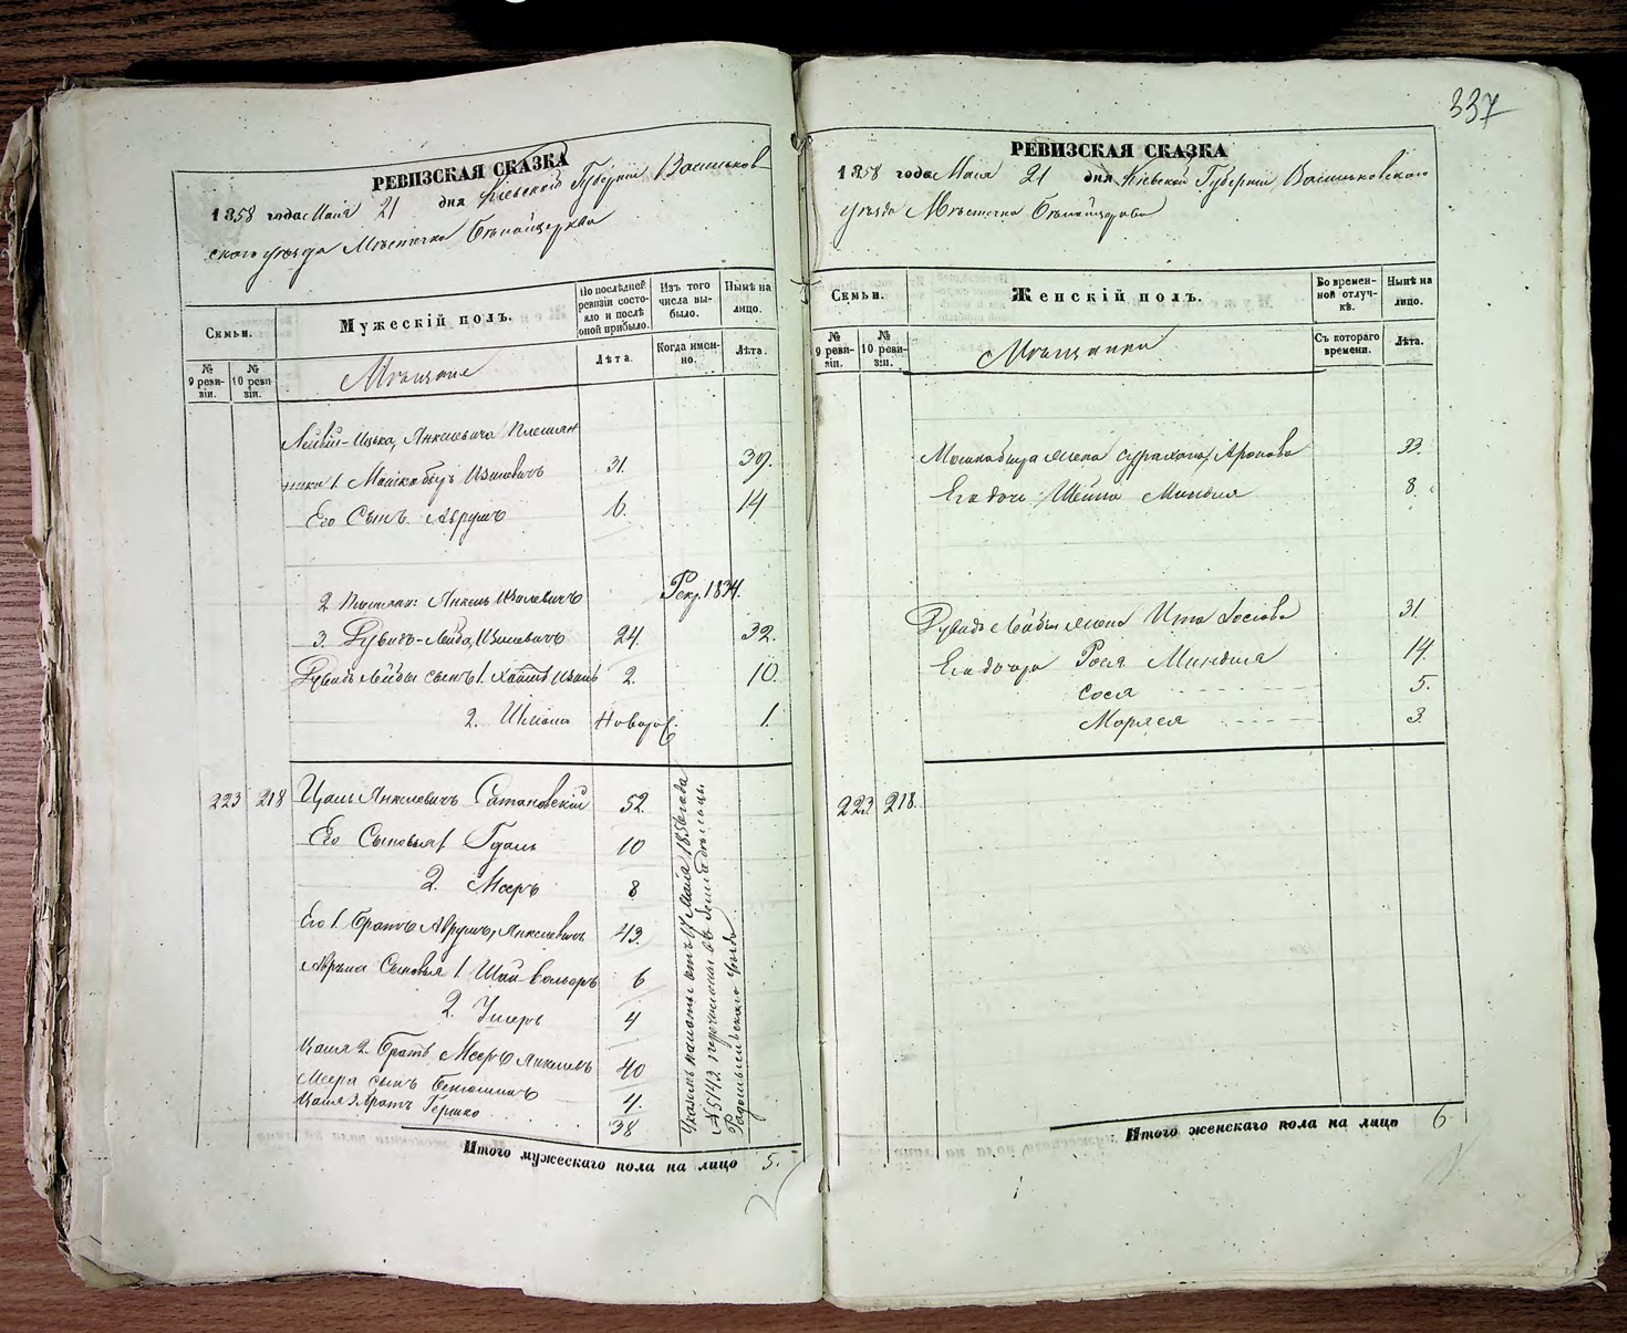 337
РЕВИЗСКАЯ СКАЗКА
1858 года Мая 21 дня Кіевской Губерніи Васильков-
скаго уѣзда Мѣстечка Бѣлойцеркви
Семьи.
Мужескій полъ.
По послѣдней ревизіи состояло и послѣ оной прибыло.
Изъ того числа выбыло.
Нынѣ на лицо.
№ 9 ревизіи.
№ 10 ревизіи.
Мѣщане
Лѣта.
Когда именно.
Лѣта.
Лейби-Ицька Янкелевича племян
ника 1. Мошка 31. 39.
Его Сынъ Аврумъ 6. 14
2 племян: Янкель Ицковичъ Рекр. 1854.
3. Рувинъ-Лейба Ицковичъ 24. 32.
Рувинъ Лейбы сынъ 1. Хаимъ 2. 10.
2. Шлюма Новорож. 1.
223 218 Цаль Янкелевичъ Сатановскій 52.
Его Сыновья 1. Гдаль 10
2. Мееръ 8
Его 1. братъ Аврумъ Янкелевичъ 43.
Аврума Сыновья 1. Шай Вольфъ 6
2. Ушеръ 4
Цаля 2. братъ Мееръ Янкелевъ 40
Меера сынъ Бенюминъ 4.
Цаля 3. братъ Гершко 38
Указомъ палаты отъ 4 Мая 1856 года
№ 5142 перечислены въ земледѣльцы
Радомысльскаго уѣзда
Итого мужескаго пола на лицо 5.
РЕВИЗСКАЯ СКАЗКА
1858 года Мая 21 дня Кіевской Губерніи Васильковскаго
уѣзда Мѣстечка Бѣлойцеркви
Семьи.
Женскій полъ.
Во временной отлучкѣ.
Нынѣ на лицо.
№ 9 ревизіи.
№ 10 ревизіи.
Мѣщанки
Съ котораго времени.
Лѣта.
жена Аронова 33.
Его дочь Шейна Миндля 8.
Рувинъ Лейбы жена Ита Іосіова 31.
Его дочери Рося Миндля 14.
Сося 5.
Моряся 3.
223 218.
Итого женскаго пола на лицо 6